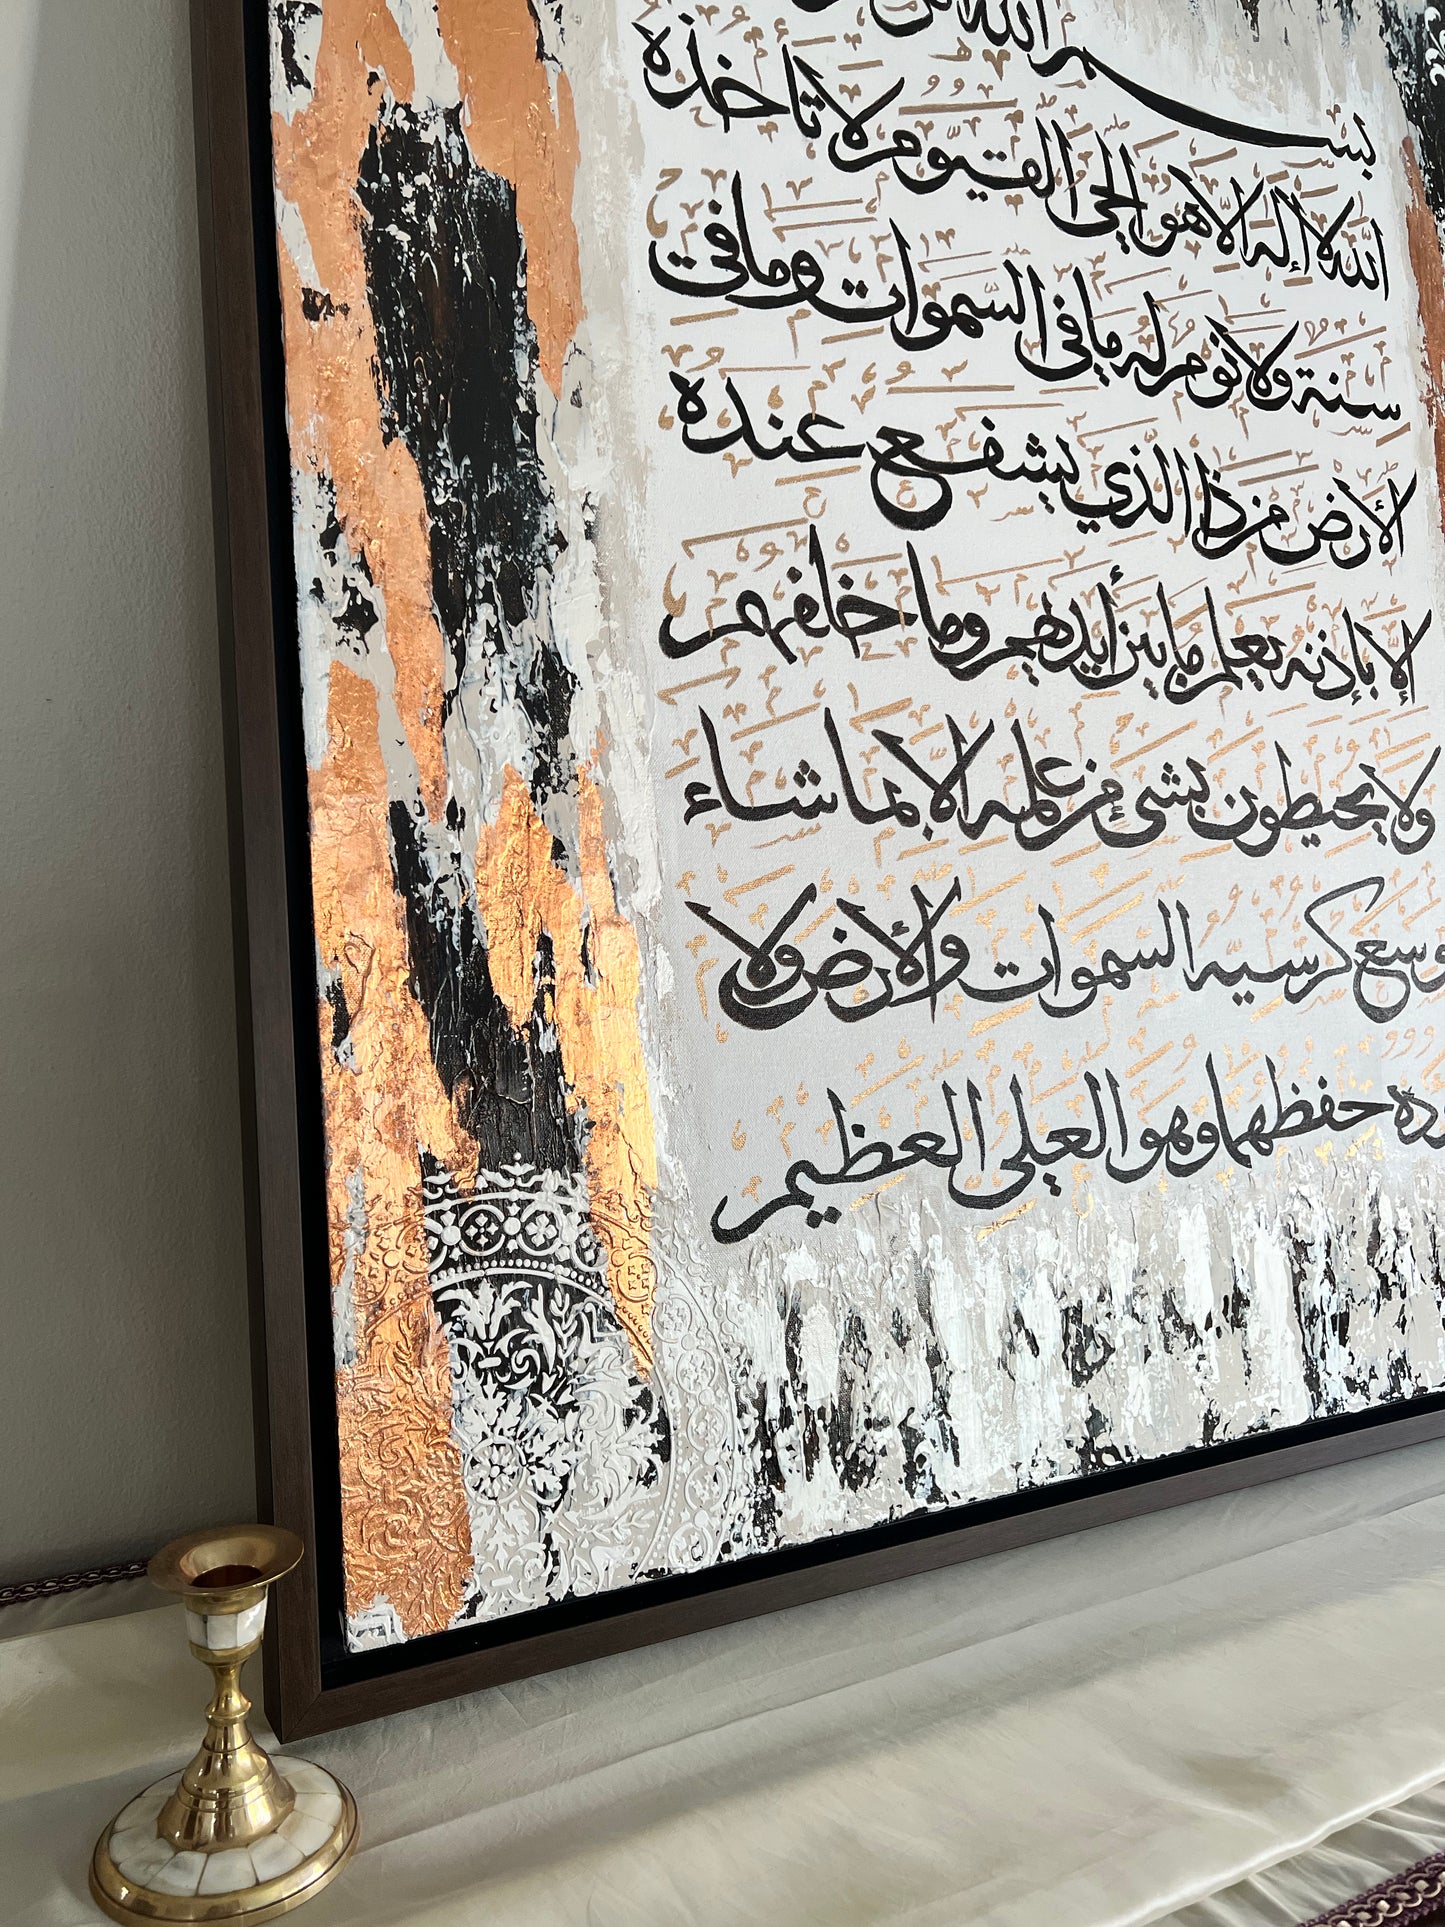 بسم الله
الله لا إله إلا هو الحي القيوم لا تأخذه
سنة ولا نوم له ما في السموات وما في
الأرض من ذا الذي يشفع عنده
إلا بإذنه يعلم ما بين أيديهم وما خلفهم
ولا يحيطون بشيء من علمه إلا بما شاء
وسع كرسيه السموات والأرض ولا
ده حفظهما وهو العلي العظيم